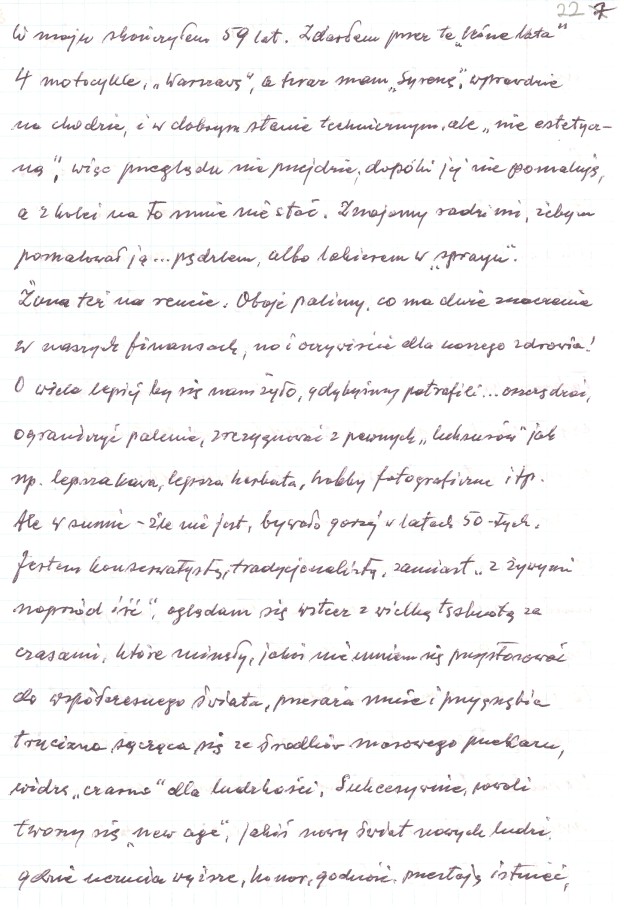 22 7
W maju skończyłem 59 lat. Zdarłem przez te „leśne lata”
4 motocykle, „Warszawę”, a teraz mam „Syrenę”, wprawdzie
na chodzie, i w dobrym stanie technicznym, ale „nie estetycz-
ną”, więc przeglądu nie przejdzie, dopóki jej nie pomaluję,
a z kolei na to mnie nie stać. Znajomy radzi mi, żebym
pomalował ją... pędzlem, albo lakierem w „sprayu”.
Żona też na rencie. Oboje palimy, co ma duże znaczenie
w naszych finansach, no i oczywiście dla naszego zdrowia!
O wiele lepiej by się nam żyło, gdybyśmy potrafili... oszczędzać,
ograniczyć palenie, zrezygnować z pewnych „luksusów” jak
np. lepsza kawa, lepsza herbata, hobby fotograficzne itp.
Ale w sumie - źle nie jest, bywało gorzej w latach 50-tych.
Jestem konserwatystą, tradycjonalistą, zamiast „z żywymi
naprzód iść”, oglądam się wstecz z wielką tęsknotą za
czasami, które minęły, jakoś nie umiem się przystosować
do współczesnego świata, przeraża mnie i przygnębia
trucizna sącząca się ze środków masowego przekazu,
widzę „czarno” dla ludzkości. Sukcesywnie, powoli
tworzy się „new age”, jakiś nowy świat nowych ludzi
gdzie uczucia wyższe, honor, godność, przestają istnieć,